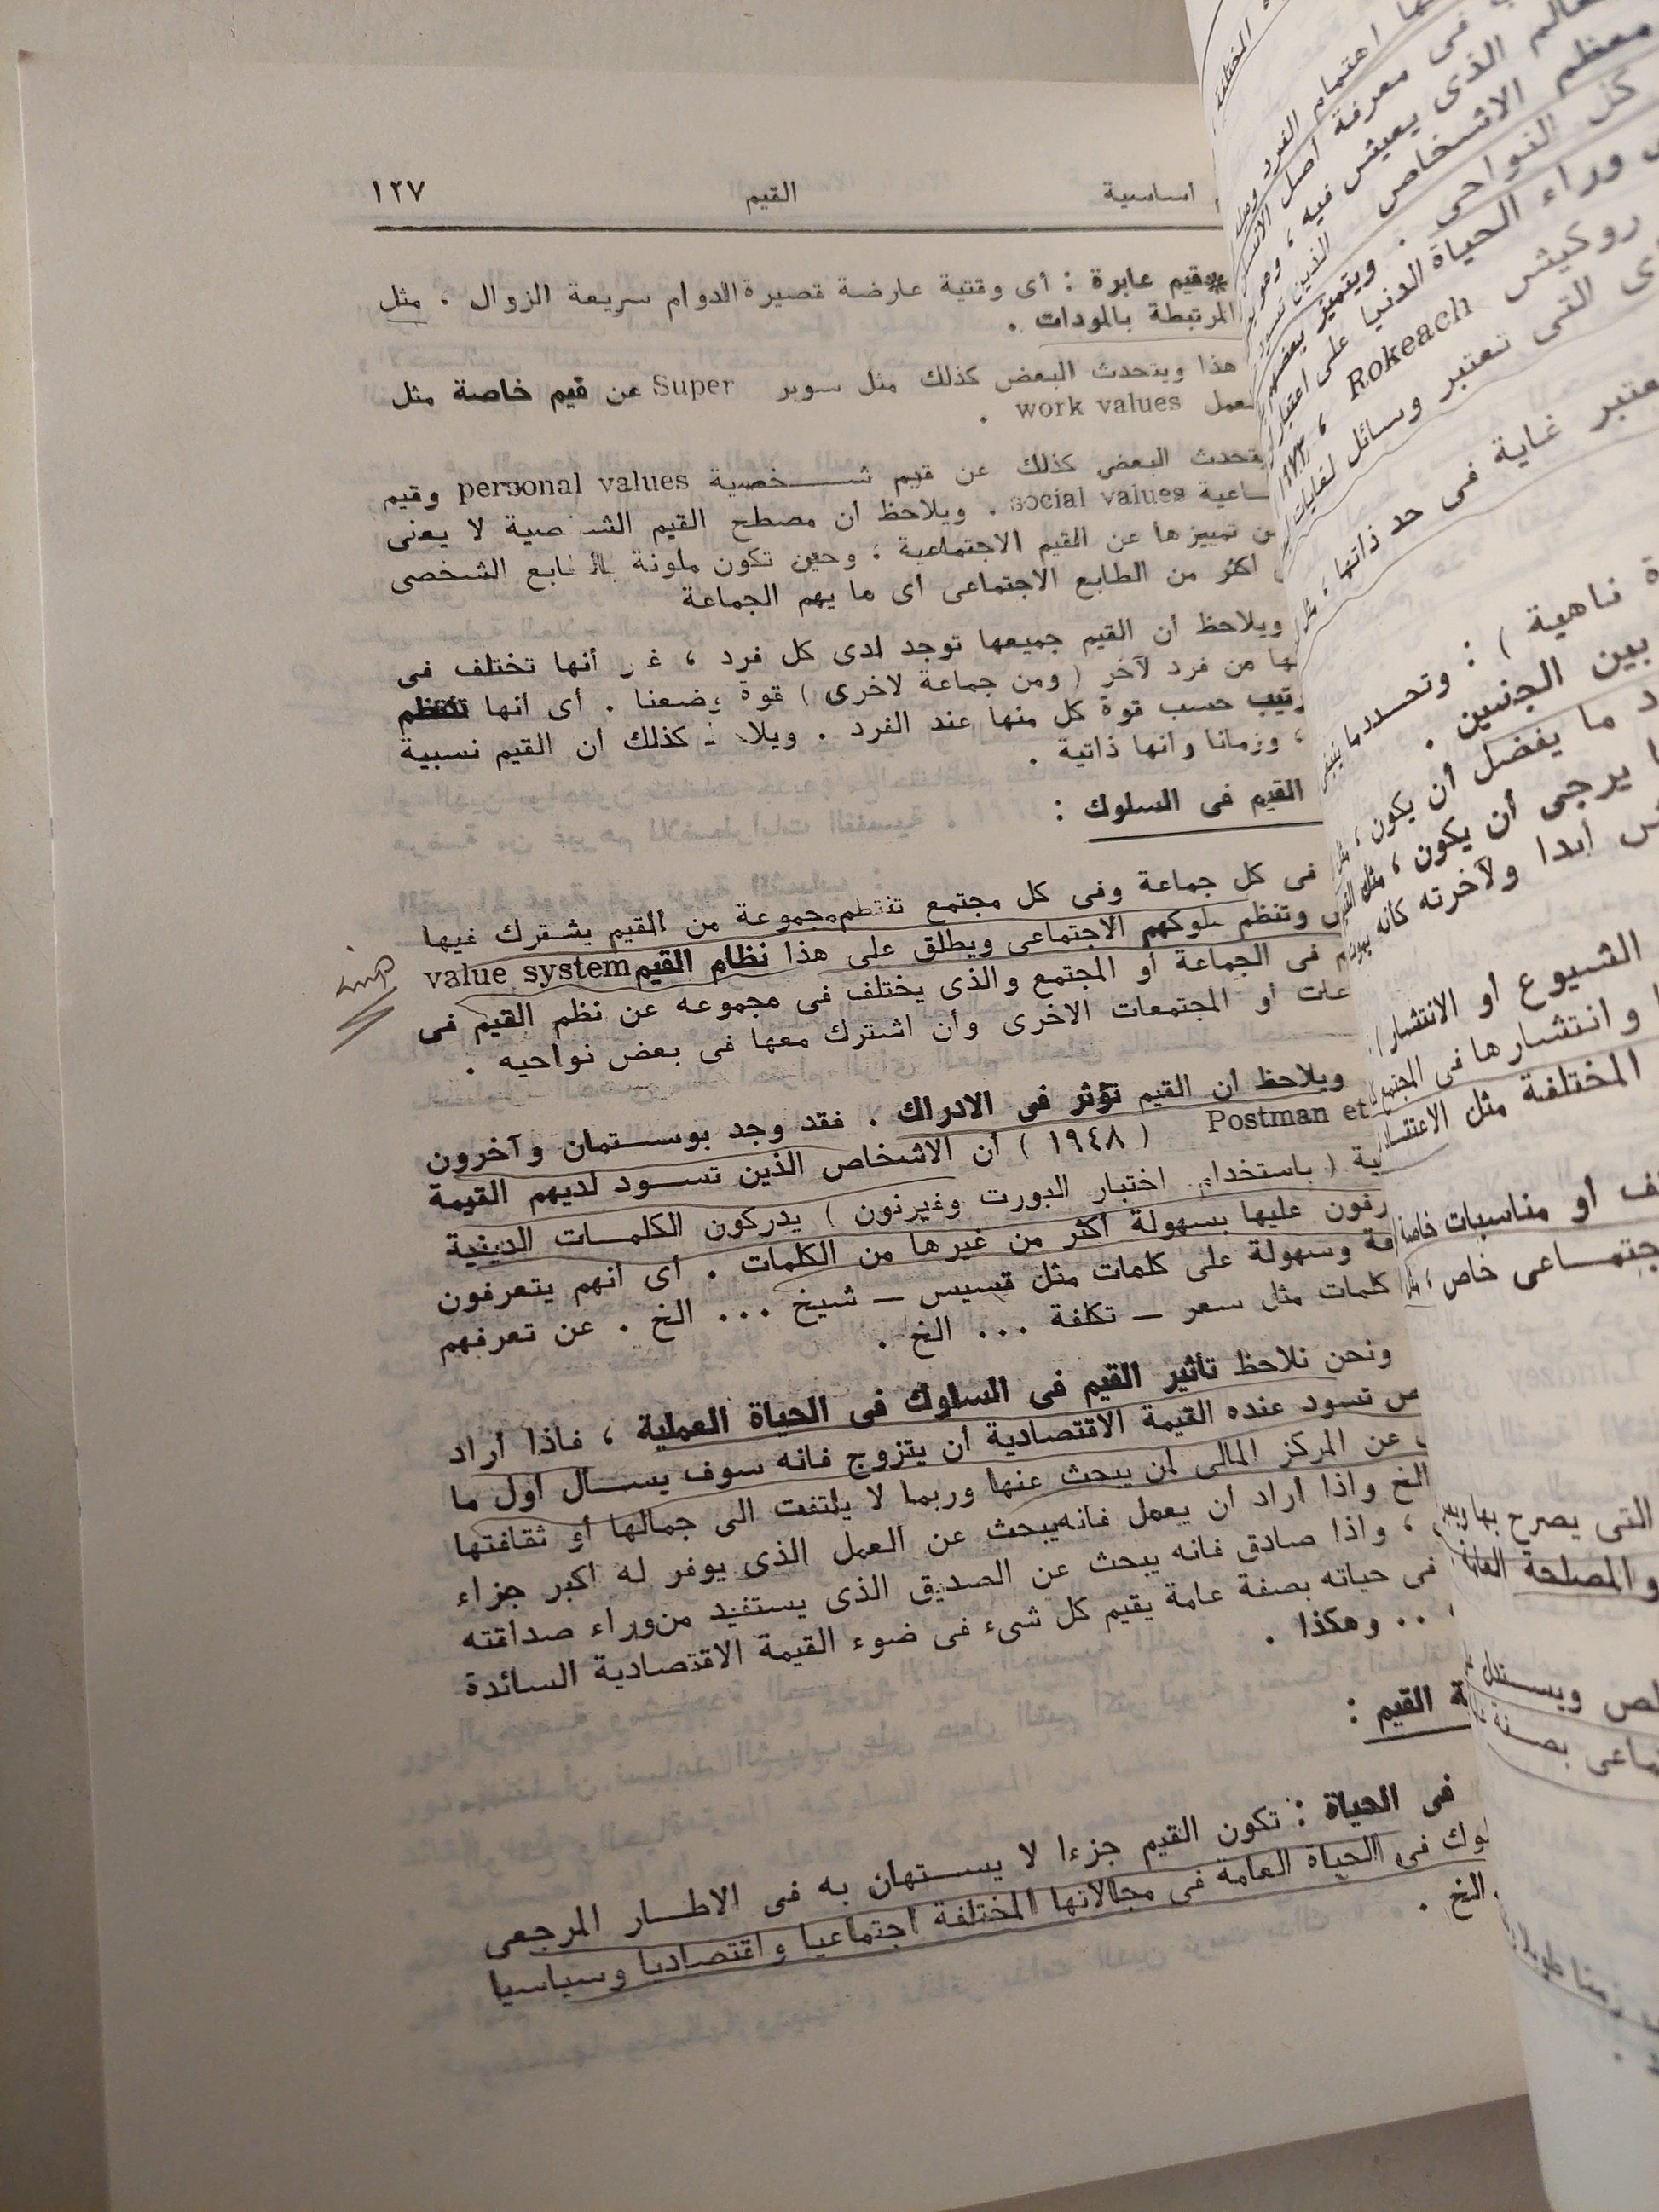 أساسية القيم ١٢٧
قيم عابرة : أى وقتية عارضة قصيرة الدوام سريعة الزوال ، مثل
المرتبطة بالمودات .
هذا ويتحدث البعض كذلك مثل سوبر Super عن قيم خاصة مثل
work values .
البعض كذلك عن قيم شخصية personal values وقيم
social values . ويلاحظ أن مصطلح القيم الشخصية لا يعنى
تمييزها عن القيم الاجتماعية ، وحين تكون ملونة الشخصى
أكثر من الطابع الاجتماعى أى ما يهم الجماعة
ويلاحظ أن القيم جميعها توجد لدى كل فرد ، أنها تختلف فى
من فرد لآخر ( ومن جماعة لاخرى ) قوة وضعفا . أى أنها تنتظم
حسب قوة كل منها عند الفرد . كذلك أن القيم نسبية
، وزمانا وانها ذاتية .
القيم فى السلوك :
فى كل جماعة وفى كل مجتمع تنتظم مجموعة من القيم يشترك فيها
وتنظم سلوكهم الاجتماعى ويطلق على هذا نظام القيم value system
فى الجماعة أو المجتمع والذى يختلف فى مجموعه عن نظم القيم فى
أو المجتمعات الاخرى وأن اشترك معها فى بعض نواحيه .
ويلاحظ أن القيم تؤثر فى الادراك . فقد وجد بوستمان وآخرون
Postman et ( ١٩٤٨ ) أن الأشخاص الذين تسود لديهم القيمة
( باستخدام اختبار البورت وفيرنون ) يدركون الكلمات الدينية
عليها بسهولة أكثر من غيرها من الكلمات . أى أنهم يتعرفون
وسهولة على كلمات مثل قسيس — شيخ ... الخ . عن تعرفهم
كلمات مثل سعر — تكلفة ... الخ .
ونحن نلاحظ تأثير القيم فى السلوك فى الحياة العملية ، فاذا أراد
تسود عنده القيمة الاقتصادية أن يتزوج فانه سوف يسأل أول ما
عن المركز المالى لمن يبحث عنها وربما لا يلتفت الى جمالها أو ثقافتها
الخ واذا أراد أن يعمل فانه يبحث عن العمل الذى يوفر له أكبر جزاء
، واذا صادق فانه يبحث عن الصديق الذى يستفيد من وراء صداقته
فى حياته بصفة عامة يقيم كل شىء فى ضوء القيمة الاقتصادية السائدة
.. وهكذا .
القيم :
فى الحياة : تكون القيم جزءا لا يستهان به فى الاطار المرجعى
فى الحياة العامة فى مجالاتها المختلفة اجتماعيا واقتصاديا وسياسيا
الخ .
المختلفة
اهتمام الفرد
فى معرفة أصل
الذى يعيش فيه ،
معظم الاشخاص الذين تسود
كل النواحى . ويتميز
وراء الحياة الدنيا على اعتبار
روكيش Rokeach ،
التى تعتبر وسائل لغايات
غاية فى حد ذاتها ،
ناهية ) : وتحدد ما ينبغى
بين الجنسين .
ما يفضل أن يكون ،
يرجى أن يكون ، مثل
أبدا ولآخرته كأنه يموت
الشيوع أو الانتشار )
وانتشارها فى المجتمع
المختلفة مثل
أو مناسبات خاصة
خاص ،
التى يصرح بها
والمصلحة العامة